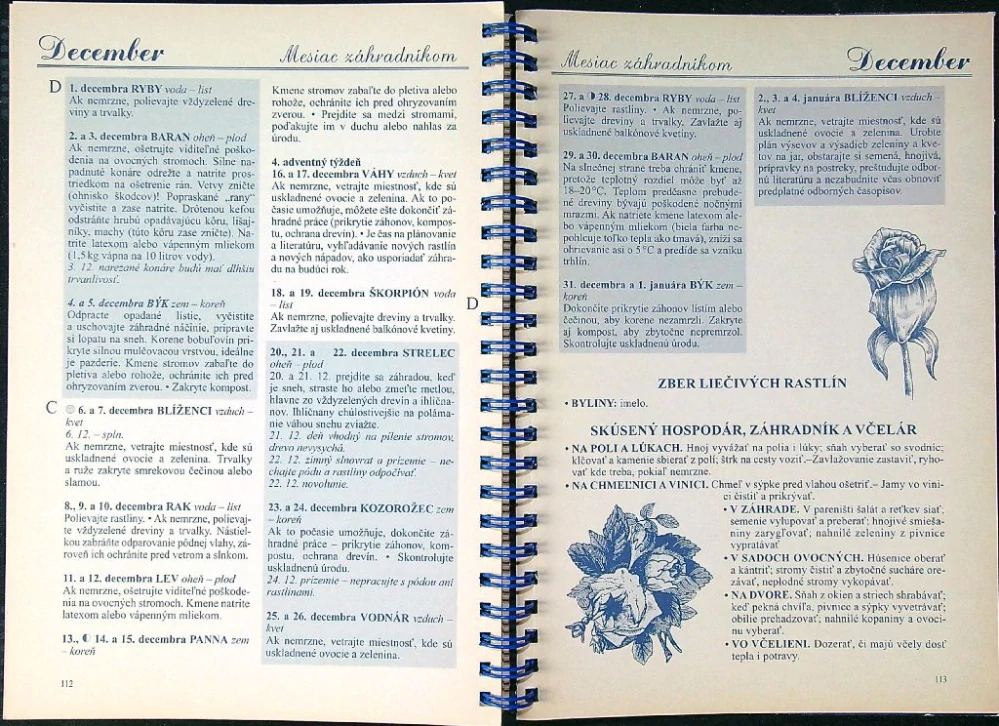 December
Mesiac záhradníkom
D
1. decembra RYBY voda – list
Ak nemrzne, polievajte vždyzelené dre-
viny a trvalky.
2. a 3. decembra BARAN oheň – plod
Ak nemrzne, ošetrujte viditeľné poško-
denia na ovocných stromoch. Silne na-
padnuté konáre odrežte a natrite pros-
triedkom na ošetrenie rán. Vetvy zničte
(ohnisko škodcov)! Popraskané „rany“
vyčistite a zase natrite. Drôtenou kefou
odstráňte hrubú opadávajúcu kôru, lišaj-
níky, machy (túto kôru zase zničte). Na-
trite latexom alebo vápenným mliekom
(1,5 kg vápna na 10 litrov vody).
3. 12. narezané konáre budú mať dlhšiu
trvanlivosť.
4. a 5. decembra BÝK zem – koreň
Odpracte opadané lístie, vyčistite
a uschovajte záhradné náčinie, pripravte
si lopatu na sneh. Korene bobuľovín pri-
kryte silnou mulčovacou vrstvou, ideálne
je pazderie. Kmene stromov zabaľte do
pletiva alebo rohože, ochránite ich pred
ohryzovaním zverou. • Zakryte kompost.
C
6. a 7. decembra BLÍŽENCI vzduch –
kvet
6. 12. – spln.
Ak nemrzne, vetrajte miestnosť, kde sú
uskladnené ovocie a zelenina. Trvalky
a ruže zakryte smrekovou čečinou alebo
slamou.
8., 9. a 10. decembra RAK voda – list
Polievajte rastliny. • Ak nemrzne, polievaj-
te vždyzelené dreviny a trvalky. Nástieľ-
kou zabráňte odparovanie pôdnej vlahy, zá-
roveň ich ochránite pred vetrom a slnkom.
11. a 12. decembra LEV oheň – plod
Ak nemrzne, ošetrujte viditeľné poškode-
nia na ovocných stromoch. Kmene natrite
latexom alebo vápenným mliekom.
13., 14. a 15. decembra PANNA zem
– koreň
Kmene stromov zabaľte do pletiva alebo
rohože, ochránite ich pred ohryzovaním
zverou. • Prejdite sa medzi stromami,
poďakujte im v duchu alebo nahlas za
úrodu.
4. adventný týždeň
16. a 17. decembra VÁHY vzduch – kvet
Ak nemrzne, vetrajte miestnosť, kde sú
uskladnené ovocie a zelenina. Ak to po-
časie umožňuje, môžete ešte dokončiť zá-
hradné práce (prikrytie záhonov, kompos-
tu, ochrana drevín). • Je čas na plánovanie
a literatúru, vyhľadávanie nových rastlín
a nových nápadov, ako usporiadať záhra-
du na budúci rok.
18. a 19. decembra ŠKORPIÓN voda
– list
D
Ak nemrzne, polievajte dreviny a trvalky.
Zavlažte aj uskladnené balkónové kvetiny.
20., 21. a 22. decembra STRELEC
oheň – plod
20. a 21. 12. prejdite sa záhradou, keď
je sneh, straste ho alebo zmeťte metlou,
hlavne zo vždyzelených drevín a ihlična-
nov. Ihličnany chúlostivejšie na poláma-
nie váhou snehu zviažte.
21. 12. deň vhodný na pílenie stromov,
drevo nevysychá.
22. 12. zimný slnovrat a prízemie – ne-
chajte pôdu a rastliny odpočívať.
22. 12. novolunie.
23. a 24. decembra KOZOROŽEC zem
– koreň
Ak to počasie umožňuje, dokončite zá-
hradné práce – prikrytie záhonov, kom-
postu, ochrana drevín. • Skontrolujte
uskladnenú úrodu.
24. 12. prízemie – nepracujte s pôdou ani
rastlinami.
25. a 26. decembra VODNÁR vzduch –
kvet
Ak nemrzne, vetrajte miestnosť, kde sú
uskladnené ovocie a zelenina.
112
Mesiac záhradníkom
December
27. a 28. decembra RYBY voda – list
Polievajte rastliny. • Ak nemrzne, po-
lievajte dreviny a trvalky. Zavlažte aj
uskladnené balkónové kvetiny.
29. a 30. decembra BARAN oheň – plod
Na slnečnej strane treba chrániť kmene,
pretože teplotný rozdiel môže byť až
18–20 °C. Teplom predčasne prebude-
né dreviny bývajú poškodené nočnými
mrazmi. Ak natriete kmene latexom ale-
bo vápenným mliekom (biela farba ne-
pohlcuje toľko tepla ako tmavá), zníži sa
ohrievanie asi o 5 °C a predíde sa vzniku
trhlín.
31. decembra a 1. januára BÝK zem –
koreň
Dokončite prikrytie záhonov lístím alebo
čečinou, aby korene nezamrzli. Zakryte
aj kompost, aby zbytočne nepremrzol.
Skontrolujte uskladnenú úrodu.
2., 3. a 4. januára BLÍŽENCI vzduch –
kvet
Ak nemrzne, vetrajte miestnosť, kde sú
uskladnené ovocie a zelenina. Urobte
plán výsevov a výsadieb zeleniny a kve-
tov na jar, obstarajte si semená, hnojivá,
prípravky na postreky, preštudujte odbor-
nú literatúru a nezabudnite včas obnoviť
predplatné odborných časopisov.
ZBER LIEČIVÝCH RASTLÍN
• BYLINY: imelo.
SKÚSENÝ HOSPODÁR, ZÁHRADNÍK A VČELÁR
• NA POLI A LÚKACH. Hnoj vyvážať na polia i lúky; sňah vyberať so svodníc;
klčovať a kamenie sbierať z polí; štrk na cesty voziť.–Zavlažovanie zastaviť, ryho-
vať kde treba, pokiaľ nemrzne.
• NA CHMEĽNICI A VINICI. Chmeľ v sýpke pred vlahou ošetriť.– Jamy vo vini-
ci čistiť a prikrývať.
• V ZÁHRADE. V pareništi šalát a reťkev siať,
semenie vylupovať a preberať; hnojivé smieša-
niny zarygľovať; nahnilé zeleniny z pivnice
vypratávať
• V SADOCH OVOCNÝCH. Húsenice oberať
a kántriť; stromy čistiť a zbytočné sucháre ore-
závať, neplodné stromy vykopávať.
• NA DVORE. Sňah z okien a striech shrabávať;
keď pekná chvíľa, pivnice a sýpky vyvetrávať;
obilie prehadzovať; nahnilé kopaniny a ovoci-
nu vyberať.
• VO VČELIENI. Dozerať, či majú včely dosť
tepla i potravy.
113